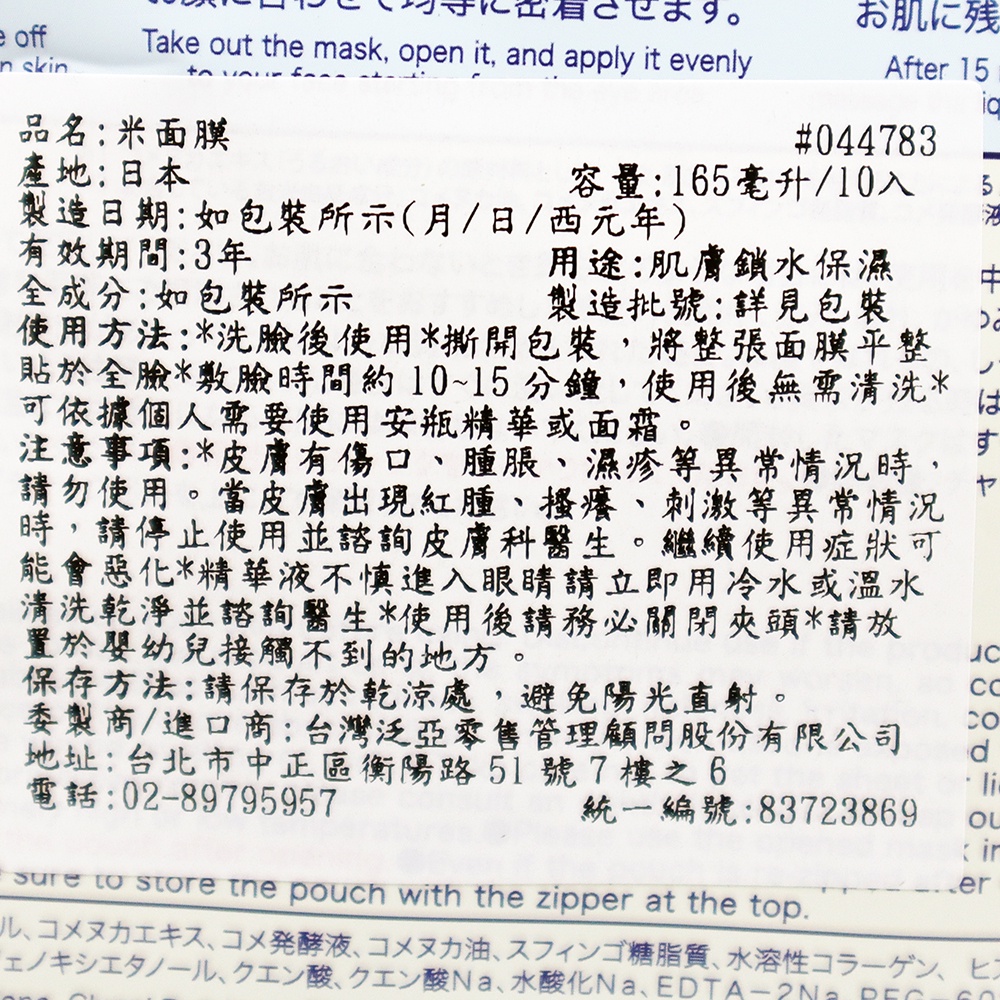 お顔に合わせて均等に密着させます。
お肌に残
e off
Take out the mask, open it, and apply it evenly
After 15
n skin
to your face starting from the
品名:米面膜 #044783
產地:日本 容量:165毫升/10入
製造日期:如包裝所示(月/日/西元年)
有效期間:3年 用途:肌膚鎖水保濕
全成分:如包裝所示 製造批號:詳見包裝
使用方法:*洗臉後使用*撕開包裝，將整張面膜平整
貼於全臉*敷臉時間約10~15分鐘，使用後無需清洗*
可依據個人需要使用安瓶精華或面霜。
注意事項:*皮膚有傷口、腫脹、濕疹等異常情況時，
請勿使用。當皮膚出現紅腫、搔癢、刺激等異常情況
時，請停止使用並諮詢皮膚科醫生。繼續使用症狀可
能會惡化*精華液不慎進入眼睛請立即用冷水或溫水
清洗乾淨並諮詢醫生*使用後請務必關閉夾頭*請放
置於嬰幼兒接觸不到的地方
保存方法:請保存於乾涼處，避免陽光直射。
委製商/進口商:台灣泛亞零售管理顧問股份有限公司
地址:台北市中正區衡陽路51號7樓之6
電話:02-89795957 統一編號:83723869
sure to store the pouch with the zipper at the top.
ル、コメヌカエキス、コメ発酵液、コメヌカ油、スフィンゴ糖脂質、水溶性コラーゲン、ヒ
フェノキシエタノール、クエン酸、クエン酸Na、水酸化Na、EDTA－2Na、PEG－60